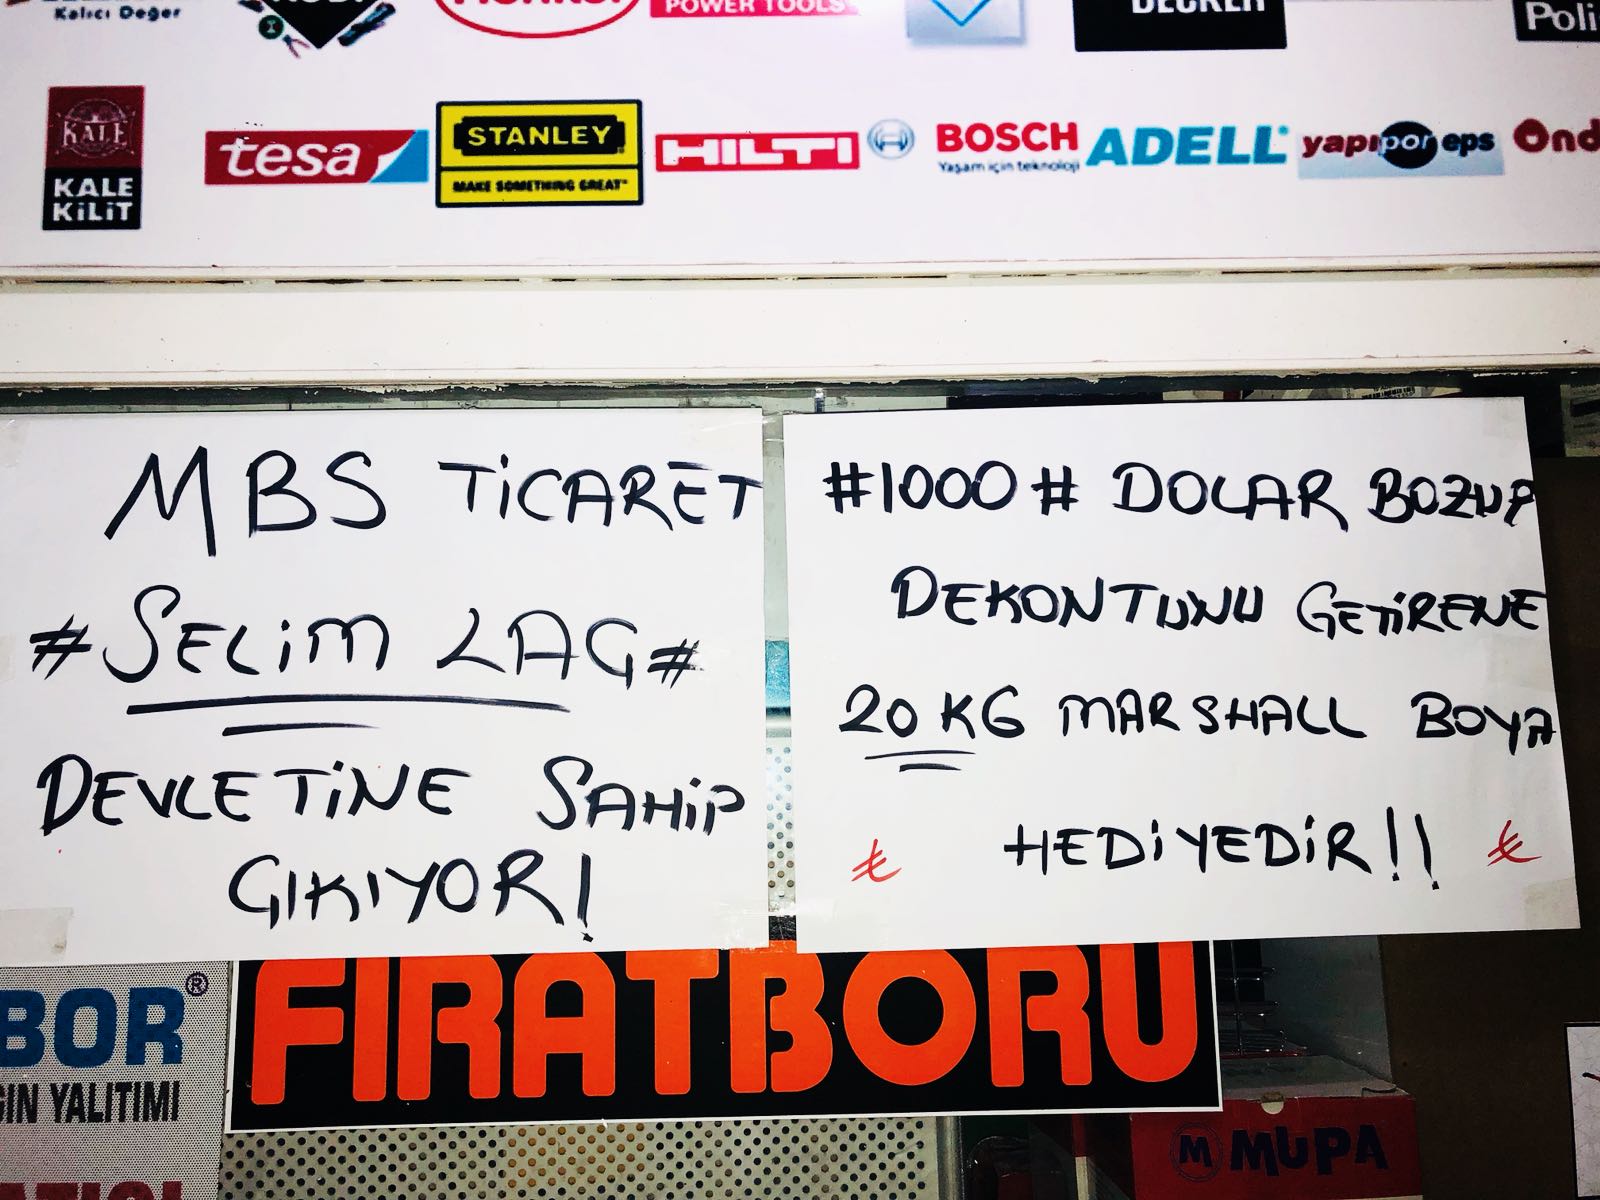 Kalıcı Değer
POWER TOOLS
DECKER
Poli
KALE
KALE
KİLİT
tesa
STANLEY
MAKE SOMETHING GREAT™
HILTI
BOSCH
Yaşam için teknoloji
ADELL®
yapıpor eps
Ond
MBS TİCARET
#SELİM LAG#
DEVLETİNE SAHİP
ÇIKIYOR!
#1000# DOLAR BOZUP
DEKONTUNU GETİRENE
20 KG MARSHALL BOYA
₺ HEDİYEDİR!! ₺
BOR®
GIN YALITIMI
FIRATBORU
M MUPA